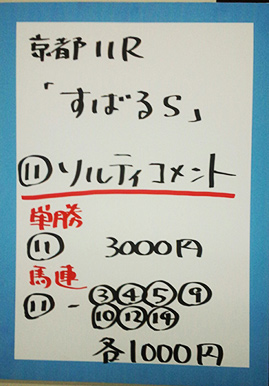 京都11R
「すばるS」
⑪ソルティコメント
単勝
⑪ 3000円
馬連
⑪-③④⑤⑨
⑩⑫⑭
各1000円